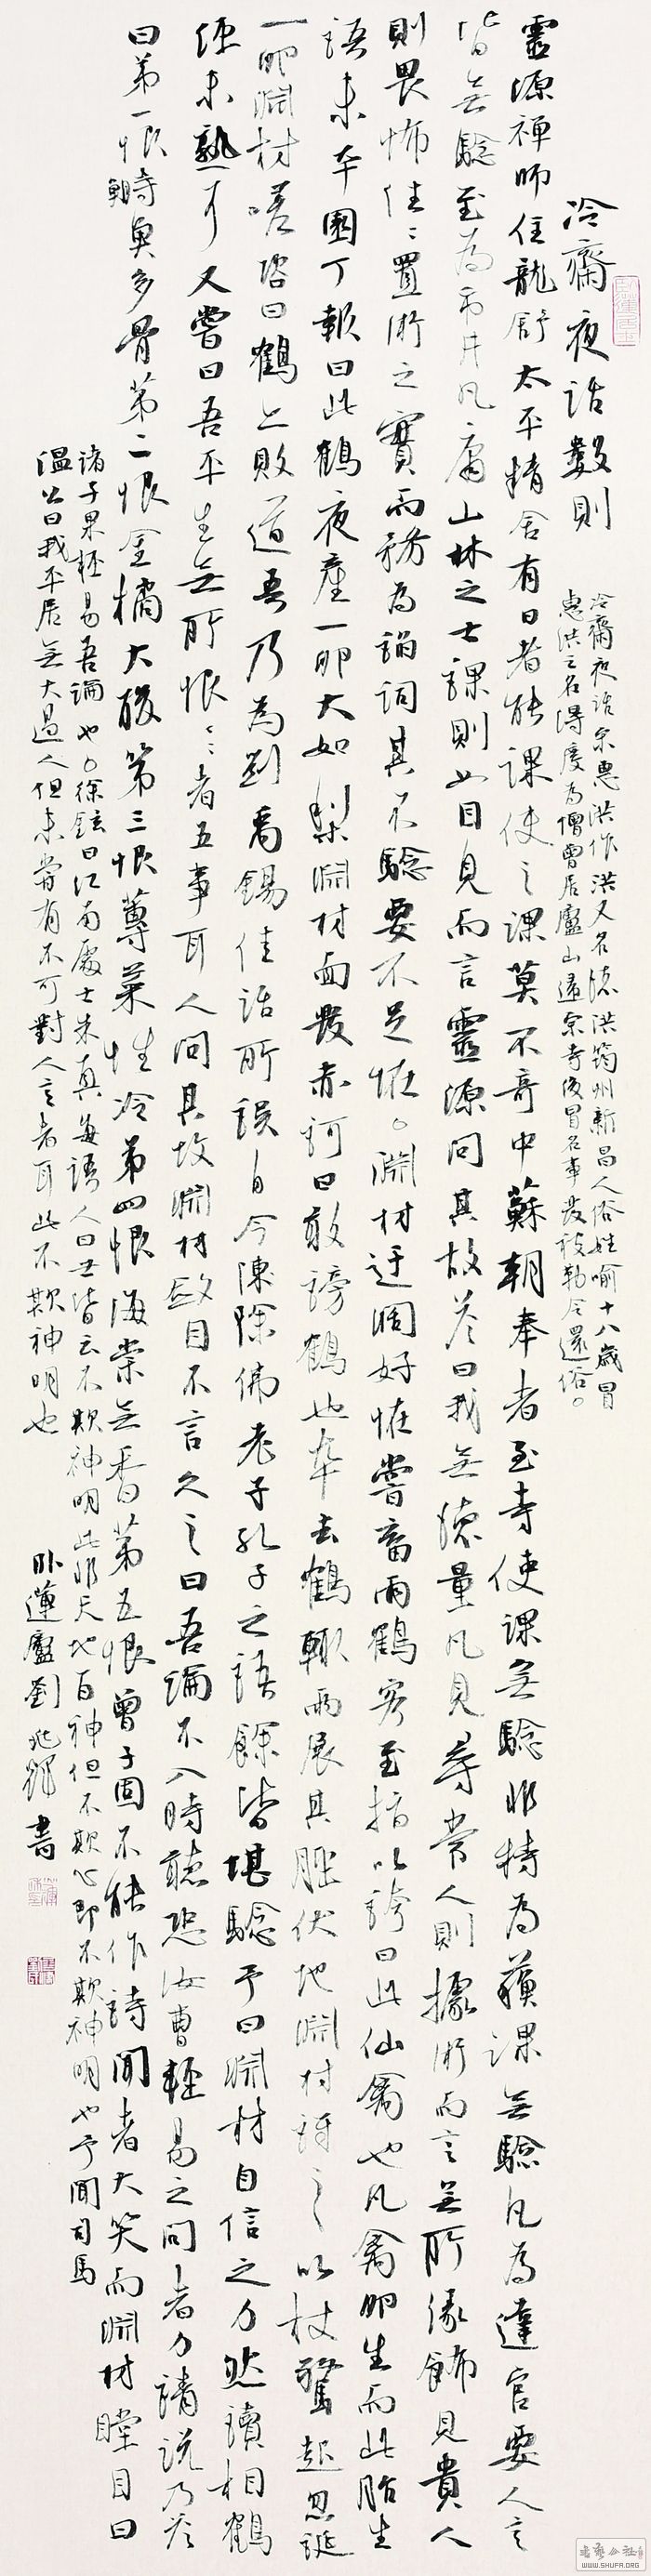 冷齋夜話數則
冷齋夜話宋惠洪作洪又名德洪筠州新昌人俗姓喻十八歲冒
惠洪之名得度為僧曾居廬山歸宗寺後冒名事發被勒令還俗。
靈源禪師住龍舒太平精舍有日者能課使之課莫不奇中蘇朝奉者至寺使課無驗非特為蘇課無驗凡為達官要人言
皆無驗至為市井凡庸山林之士課則如目見而言靈源問其故答曰我無德量凡見尋常人則據術而言無所緣飾見貴人
則畏怖往往置術之實而務為諂詞其不驗要不足怪。淵材迂闊好怪嘗畜兩鶴客至指以誇曰此仙禽也凡禽卵生而此胎生
語未卒園丁報曰此鶴夜產一卵大如梨淵材面發赤訶曰敢謗鶴也卒去鶴輒兩展其脛伏地淵材訝之以杖驚起忽誕
一卵淵材嗟咨曰鶴亦敗道吾乃為劉禹錫佳話所誤自今除佛老子孔子之語餘皆堪驗予曰淵材自信之力然讀相鶴
經未熟耳又嘗曰吾平生無所恨恨者五事耳人問其故淵材斂目不言久之曰吾論不入時聽恐汝曹輕易之問者力請說乃答
曰第一恨鰣魚多骨第二恨金橘太酸第三恨蓴菜性冷第四恨海棠無香第五恨曾子固不能作詩聞者大笑而淵材瞠目曰
諸子果輕易吾論也。徐鉉曰江南處士朱真每語人曰世皆云不欺神明此非天地百神但不欺心即不欺神明也予聞司馬
溫公曰我平居無大過人但未嘗有不可對人言者耳此不欺神明也
臥蓮廬劉兆彬書
WWW.SHUFA.ORG